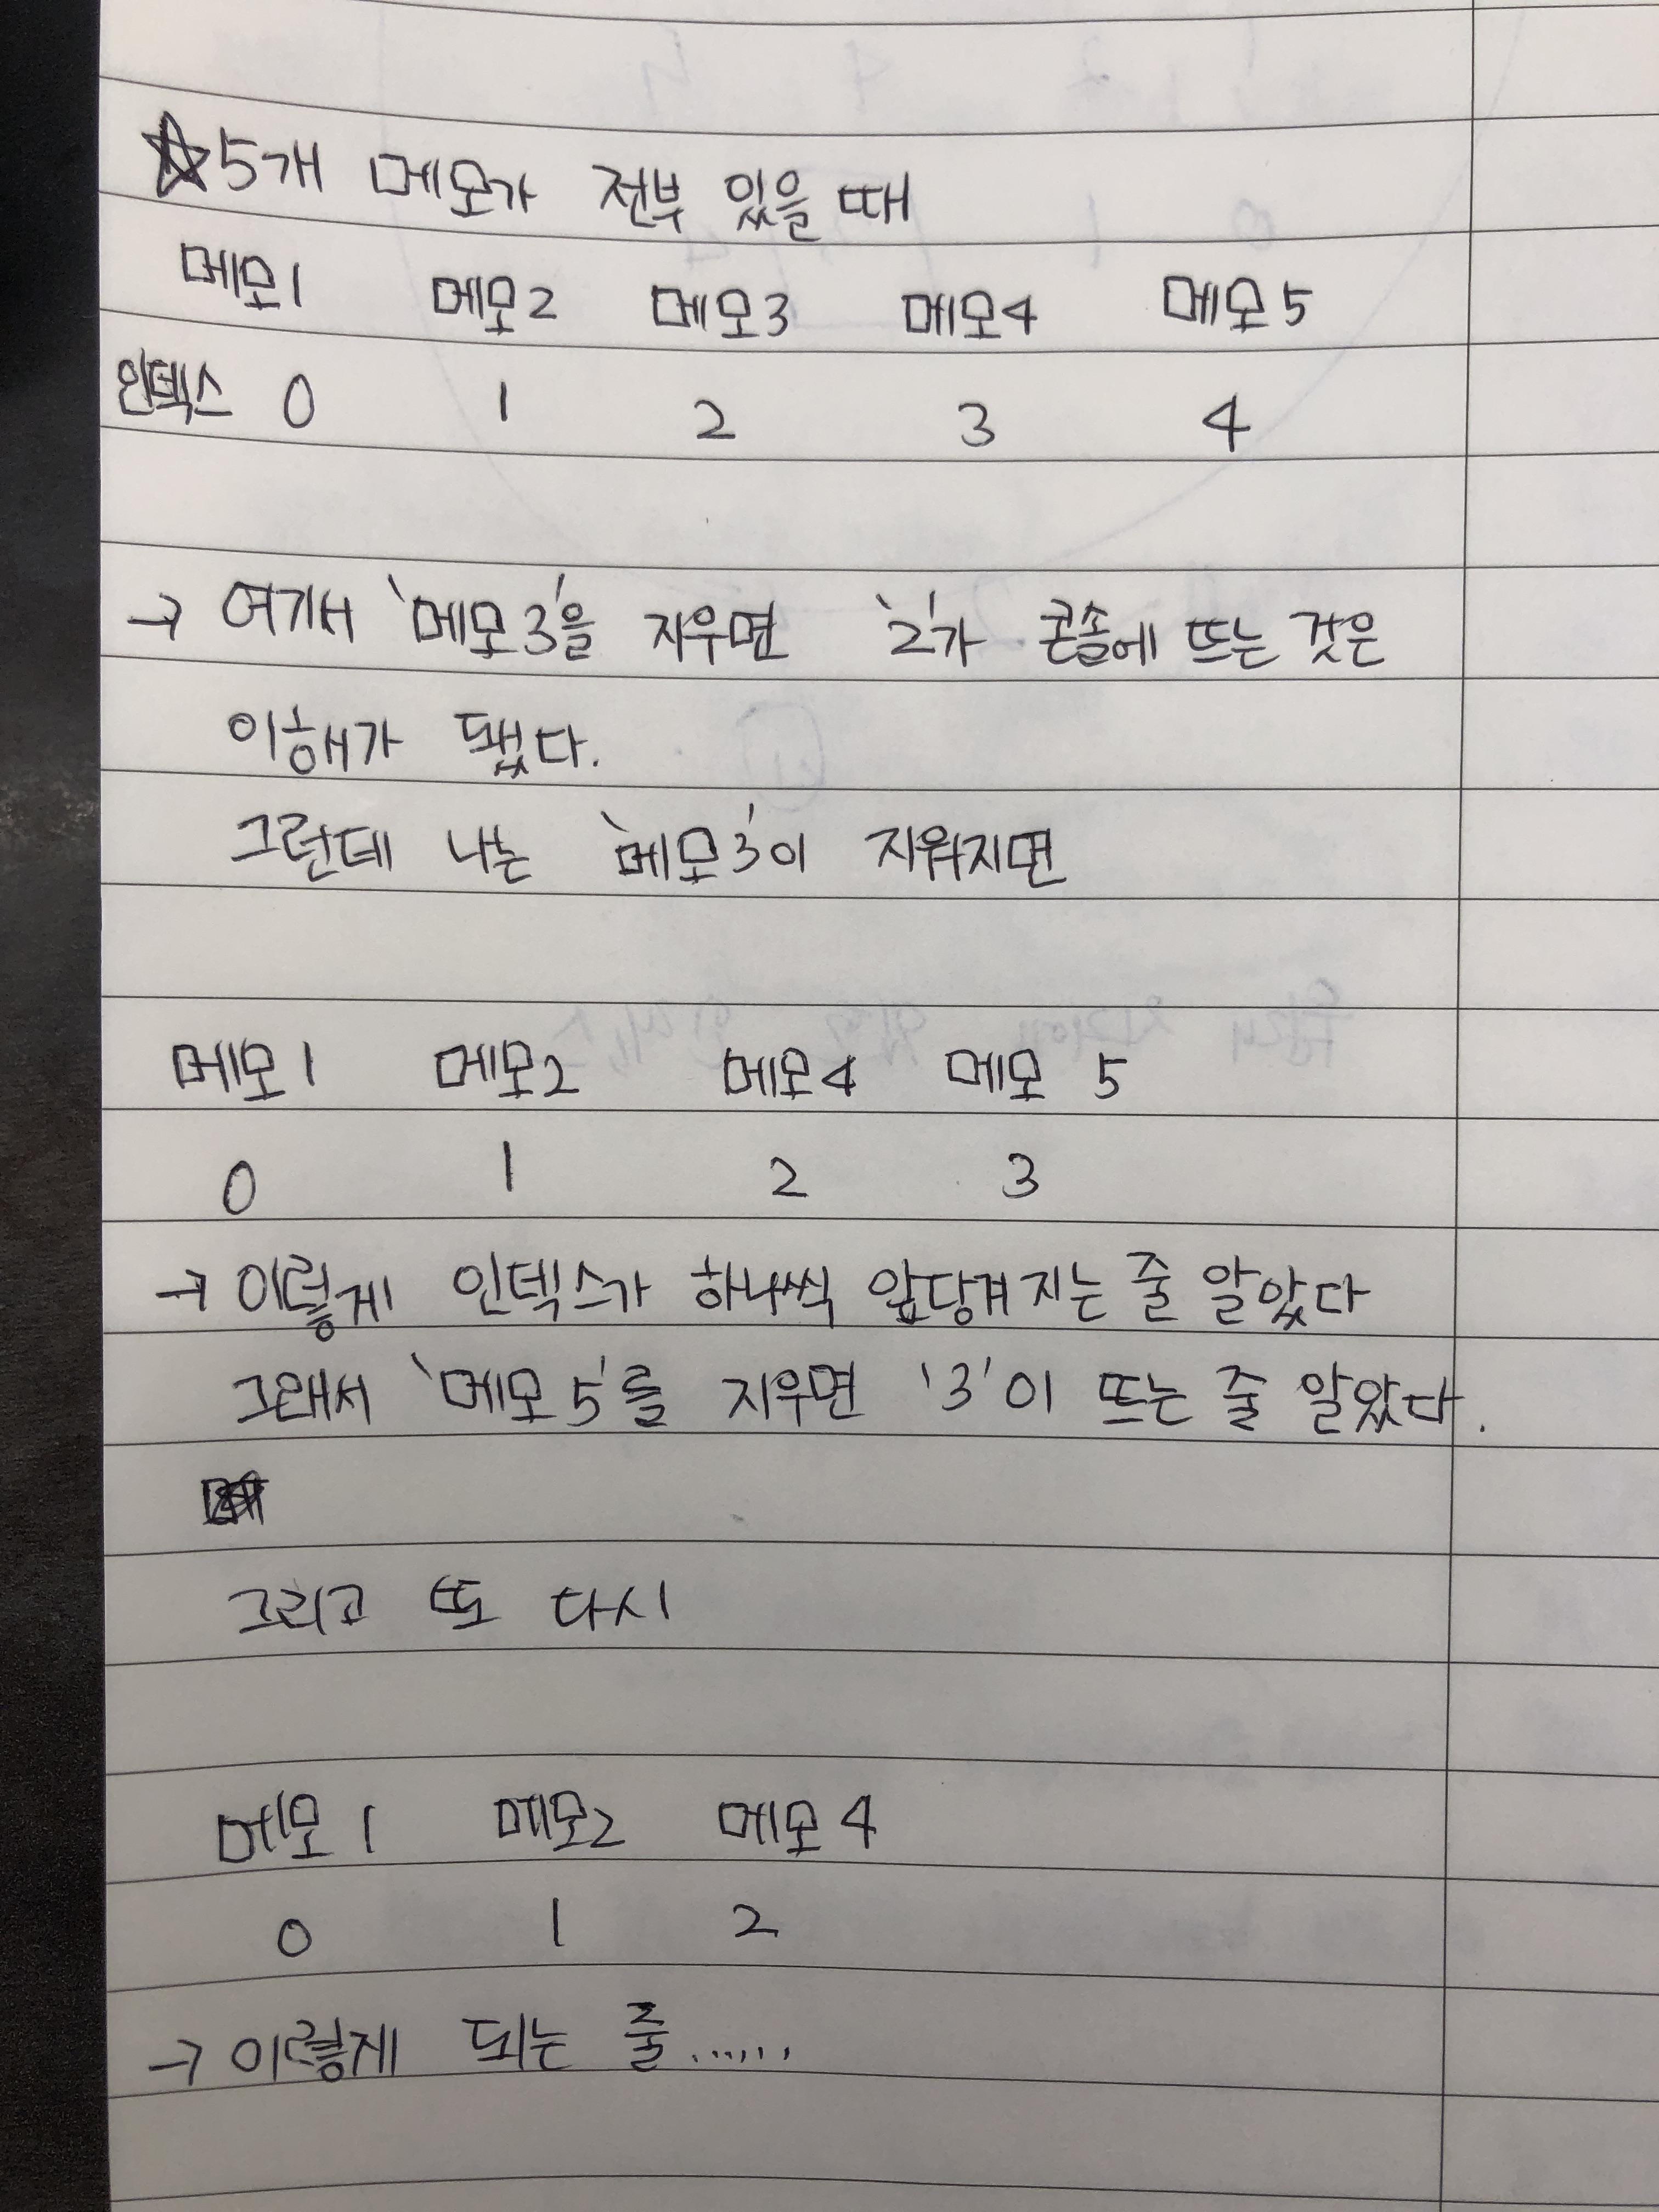 ☆5개 메모가 전부 있을 때
메모1 메모2 메모3 메모4 메모5
인덱스 0 1 2 3 4
→ 여기서 '메모3'을 지우면 '2'가 콘솔에 뜨는 것은
이해가 됐다.
그런데 나는 '메모3'이 지워지면
메모1 메모2 메모4 메모 5
0 1 2 3
→ 이렇게 인덱스가 하나씩 앞당겨지는 줄 알았다
그래서 '메모5'를 지우면 '3'이 뜨는 줄 알았다.
그리고 또 다시
메모 1 메모2 메모4
0 1 2
→ 이렇게 되는 줄......